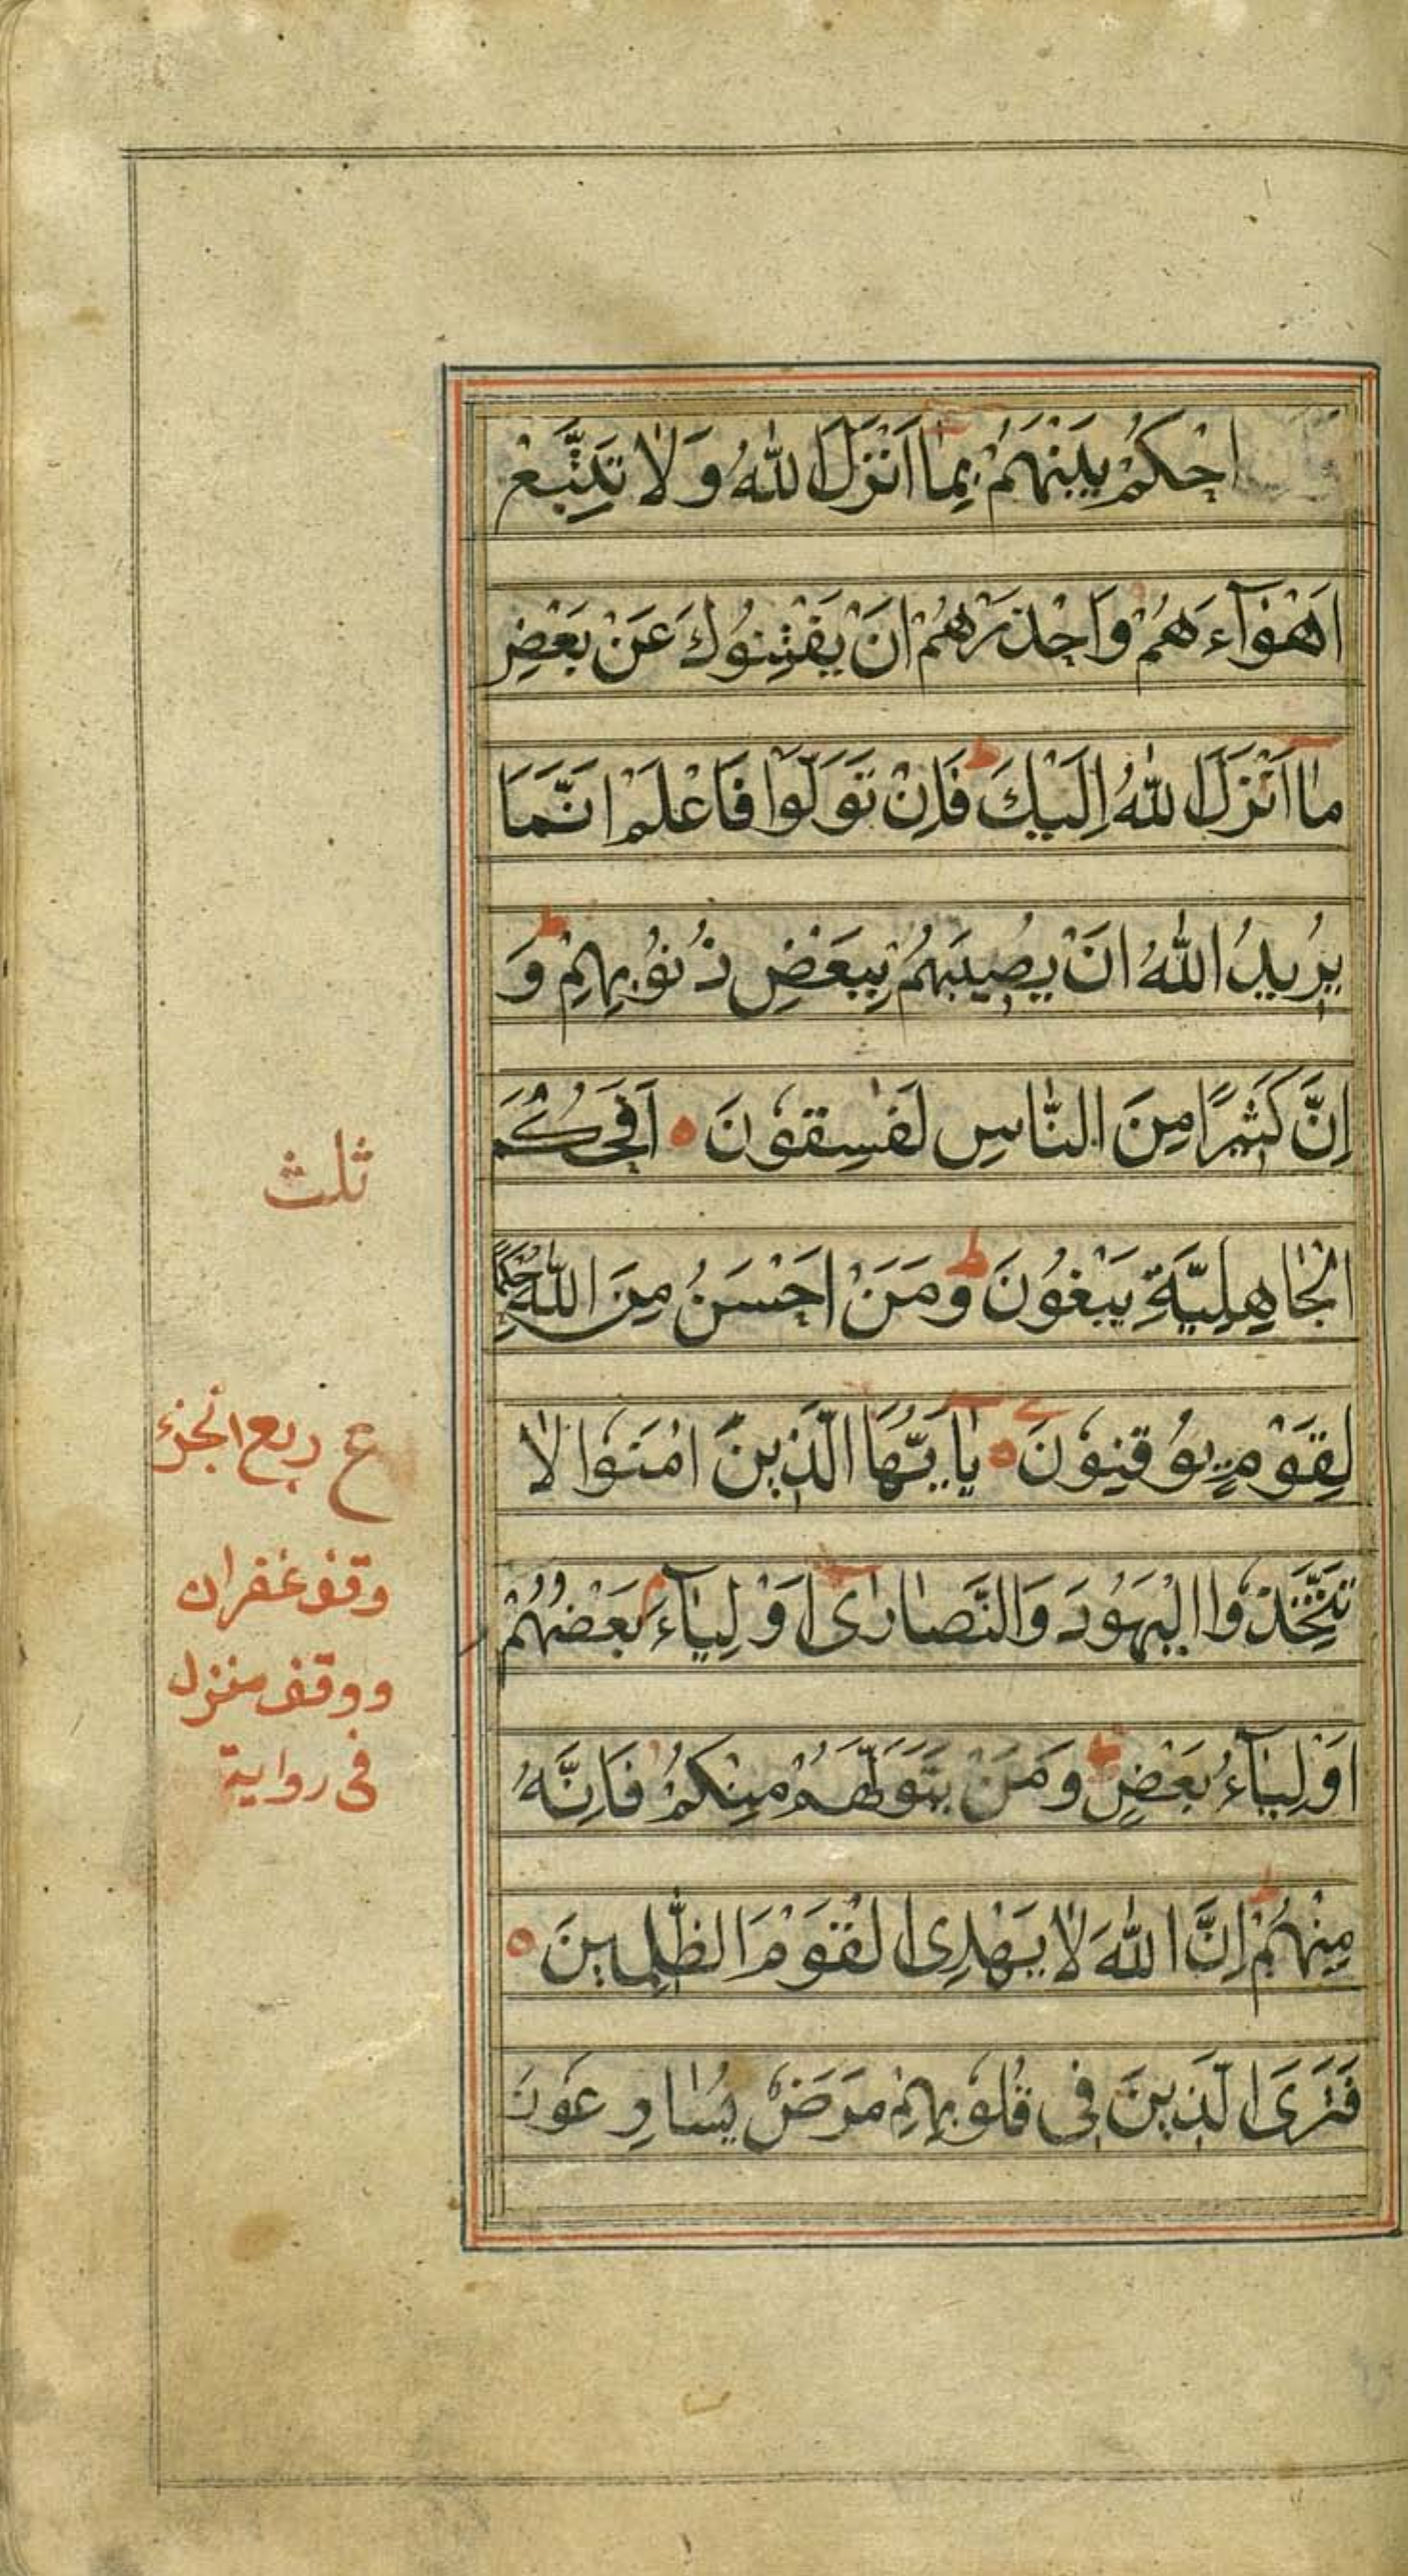 احْكُمْ بَيْنَهُمْ بِمَا اَنْزَلَ اللّٰهُ وَلَا تَتَّبِعْ
اَهْوَآءَهُمْ وَاحْذَرْهُمْ اَنْ يَفْتِنُوْكَ عَنْ بَعْضِ
مَا اَنْزَلَ اللّٰهُ اِلَيْكَ ط فَاِنْ تَوَلَّوْا فَاعْلَمْ اَنَّمَا
يُرِيدُ اللّٰهُ اَنْ يُصِيبَهُمْ بِبَعْضِ ذُنُوْبِهِمْ ط وَ
اِنَّ كَثِيرًا مِنَ النَّاسِ لَفٰسِقُوْنَ ه اَفَحُكْمَ
الْجَاهِلِيَّةِ يَبْغُونَ ط وَمَنْ اَحْسَنُ مِنَ اللّٰهِ حُكْمًا
لِقَوْمٍ يُوْقِنُوْنَ ه يٰا اَيُّهَا الَّذِينَ اٰمَنُوْا لَا
تَتَّخِذُوا الْيَهُوْدَ وَالنَّصَارٰى اَوْلِيَآءَ م بَعْضُهُمْ
اَوْلِيَآءُ بَعْضٍ ط وَمَنْ يَتَوَلَّهُمْ مِنْكُمْ فَاِنَّهُ
مِنْهُمْ ط اِنَّ اللّٰهَ لَا يَهْدِى الْقَوْمَ الظّٰلِمِينَ ه
فَتَرَى الَّذِينَ فِى قُلُوْبِهِمْ مَرَضٌ يُسَارِعُوْنَ
ثلث
ع ربع الجزء
وقف غفران
ووقف منزل
فى رواية